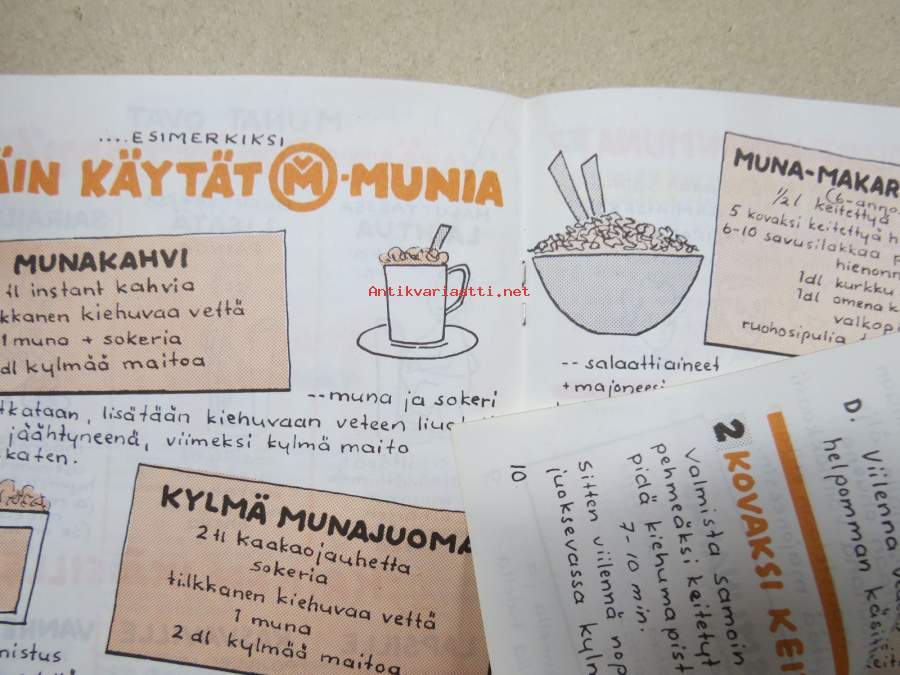 ....ESIMERKIKSI
KÄYTÄT M-MUNIA
MUNAKAHVI
tl instant kahvia
kiehuvaa vettä
1 muna + sokeria
dl kylmää maitoa
-- muna ja sokeri
lisätään kiehuvaan veteen
jäähtyneenä, viimeksi kylmä maito
KYLMÄ MUNAJUOMA
2 tl kaakaojauhetta
sokeria
tilkkanen kiehuvaa vettä
1 muna
2 dl kylmää maitoa
Antikvariaatti.net
MUNA-MAKAR
(6-annos
1/2 l keitettyä
5 kovaksi keitettyä
6-10 savusilakkaa
hienonn
1dl kurkku
1dl omena
valkopi
ruohosipulia
-- salaattiaineet
+majoneesi
D. Viilennä
helpomman käsit
2 KOVAKSI KEI
Valmista samoin
pehmeäksi keitetyt
pidä kiehumapist
7-10 min.
Sitten viilennä nop
juoksevassa kylm
10